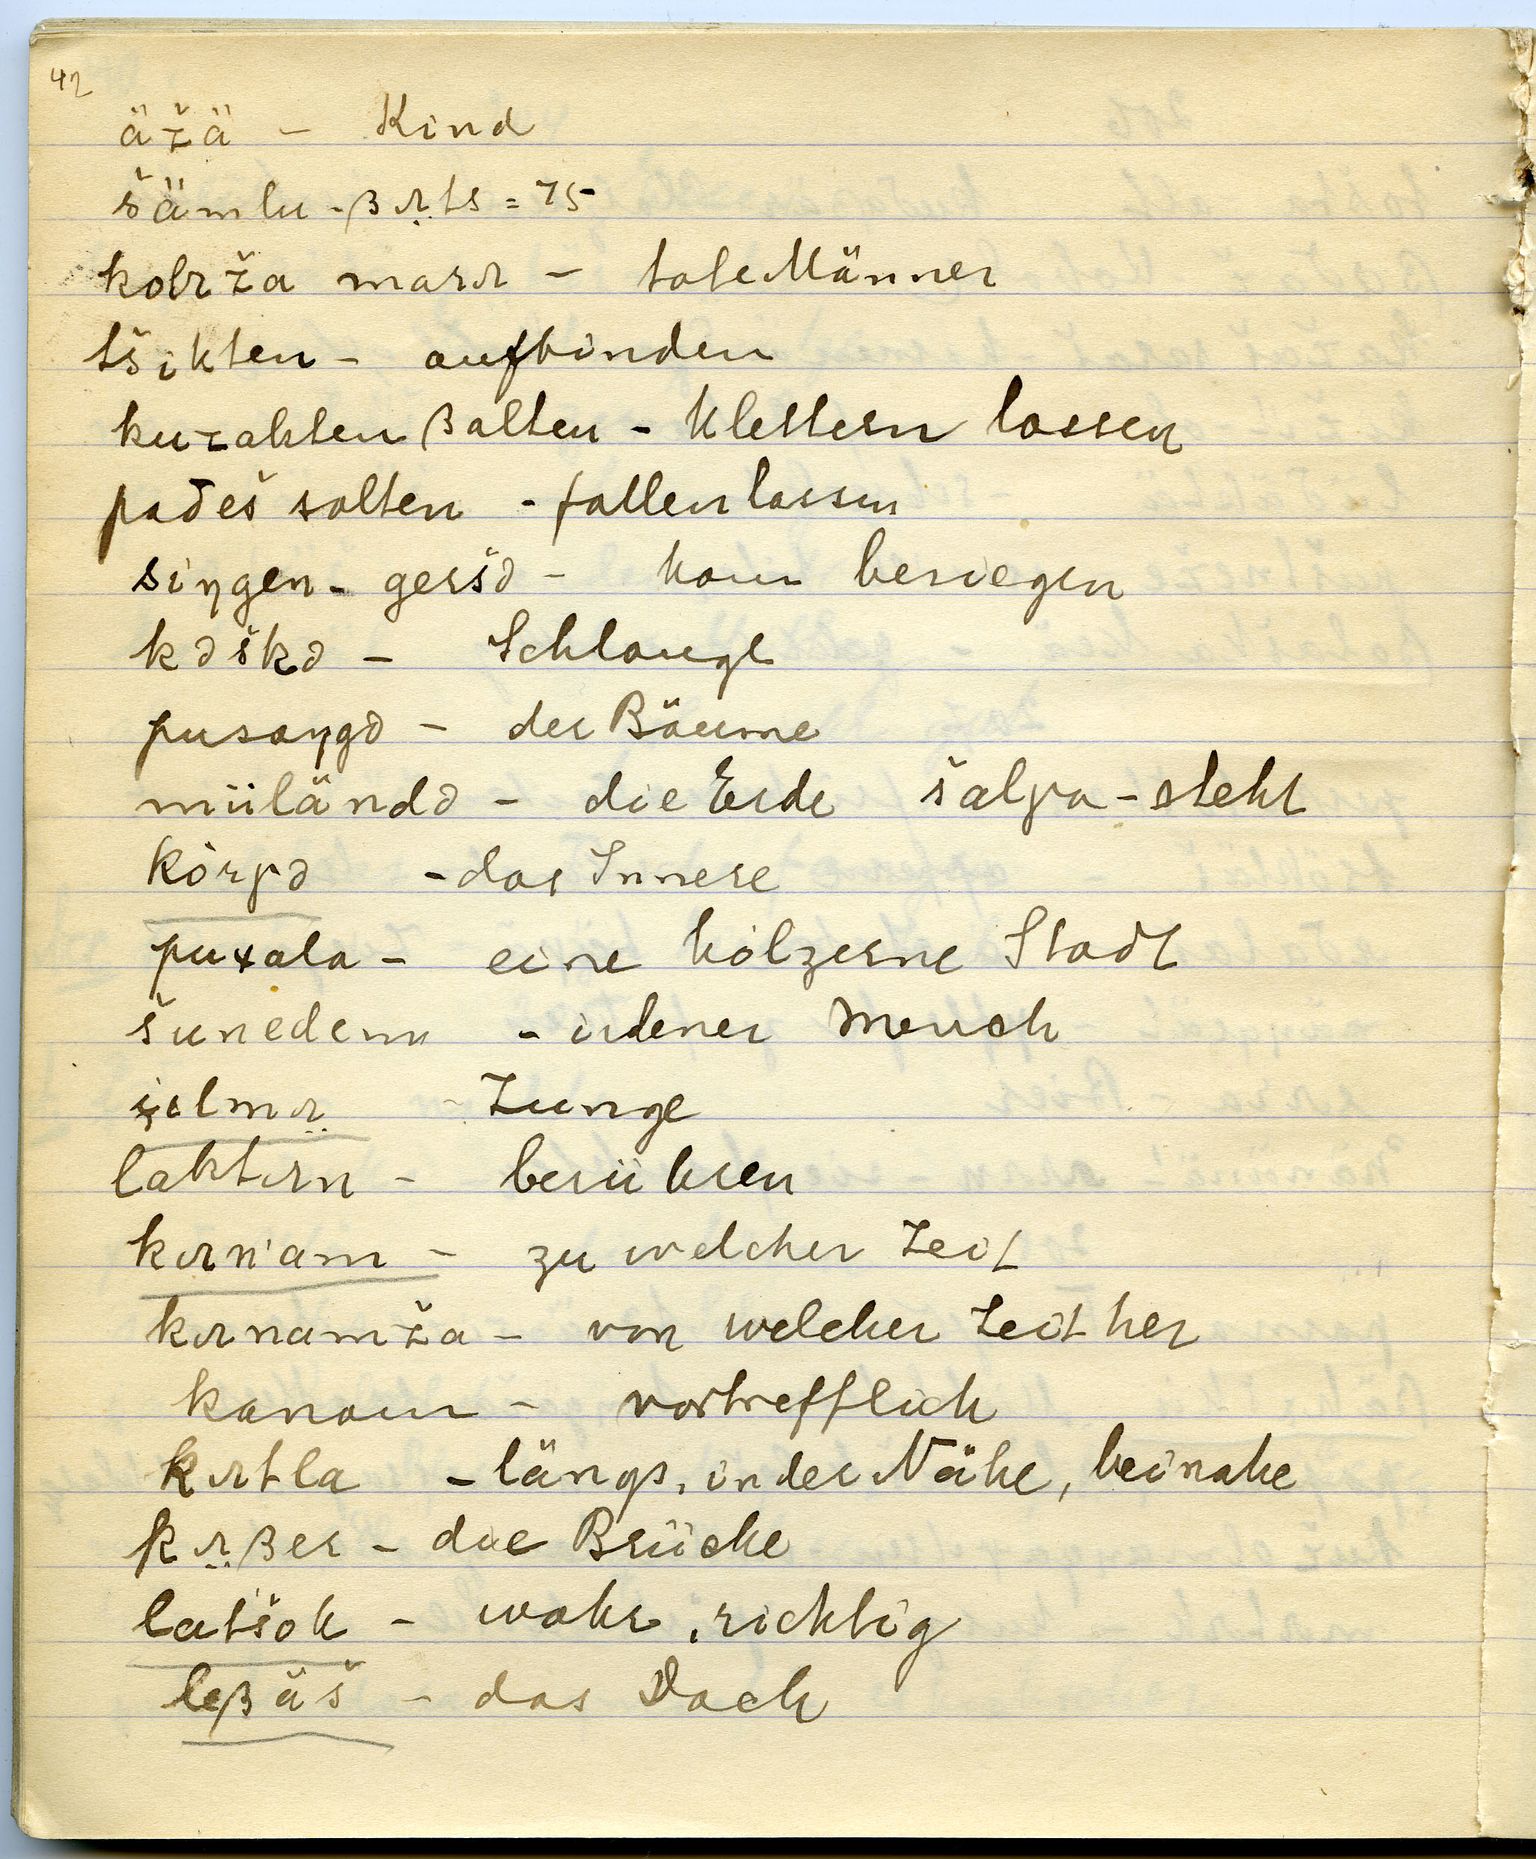 42
äžä - Kind
šämlu-βr̤ts = 75
kolržа marr - tote Männer
tšikten - aufbinden
kuzakten βalten - klettern lassen
padeš salten - fallen lassen
siŋgen - geršə - kann besiegen
kəškə - Schlange
pusaŋgə - der Bäume
müländə - die Erde šalγa - steht
körγə - das Innere
puxala - eine hölzerne Stadt
šunedem - irdener Mensch
jilmr̤ - Zunge
laktrn - berühren
krn'am - zu welcher Zeit
krnamža - von welcher Zeit her
kanaur - vortrefflich
krtla - längs, in der Nähe, beinahe
kr̤βer - die Brücke
latšok - wahr, richtig
leβäš - das Dach